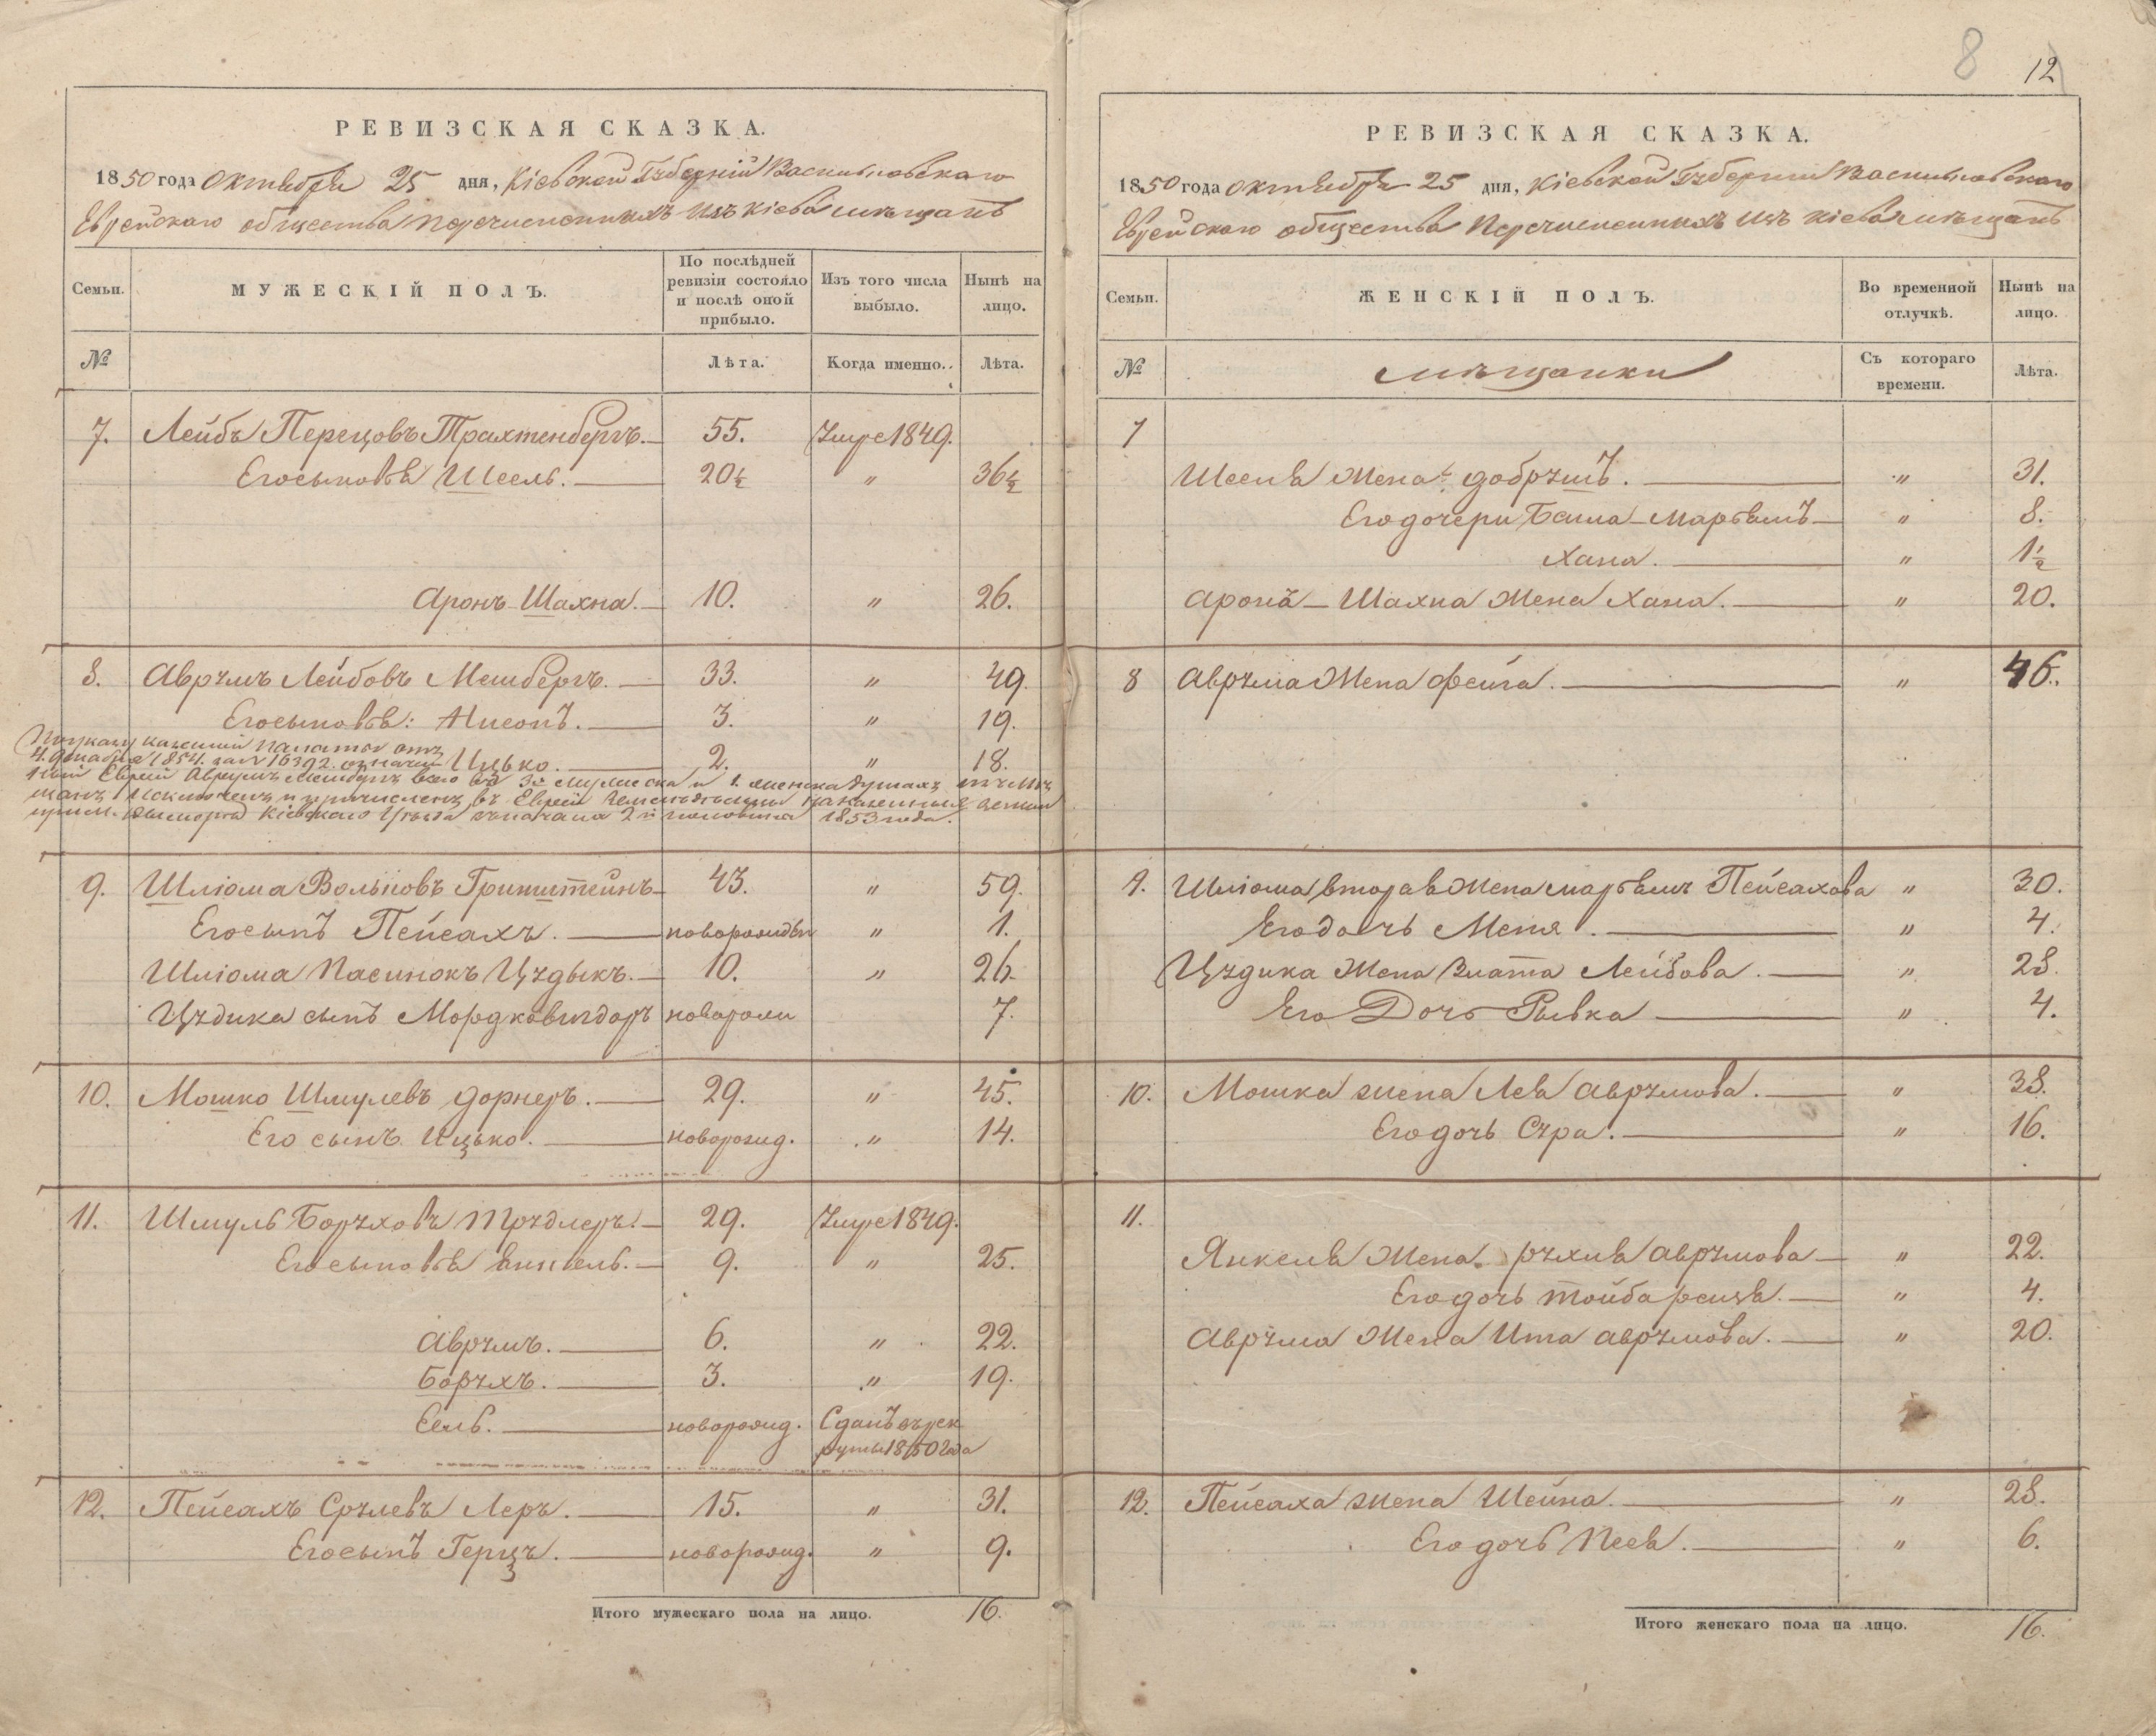 8 12
РЕВИЗСКАЯ СКАЗКА.
1850 года октября 25 дня, Кіевской Губерніи Васильковскаго
Еврейскаго общества Перечисленныхъ изъ Кіева мѣщанъ
Семьи.
МУЖЕСКІЙ ПОЛЪ.
По послѣдней ревизіи состояло и послѣ оной прибыло.
Изъ того числа выбыло.
Нынѣ на лицо.
№
Лѣта.
Когда именно.
Лѣта.
7. Лейбъ Перецовъ Трахтенбергъ. 55. Умре 1849.
Его сыновья Шсель. 20½ " 36½
Аронъ-Шахна. 10. " 26.
8. Аврумъ Лейбовъ Мешбергъ. 33. " 49.
Его сыновья: Нисонъ. 3. " 19.
Ицько. 2. " 18.
По указу казенной палаты отъ
4. декабря 1854. за № 16392.
1853 года.
9. Шліома Вольковъ Гринштейнъ 43. " 59.
Его сынъ Пейсахъ. новорожден " 1.
Шліома Пасинокъ Цудыкъ. 10. " 26.
Цудика сынъ Мордко-вигдоръ новорожд 7.
10. Мошко Шмулевъ Дорнеръ. 29. " 45.
Его сынъ Ицько. новорожд. " 14.
11. Шмуль Боруховъ Трудлеръ. 29. Умре 1849.
Его сыновья Янкель. 9. " 25.
Аврумъ. 6. " 22.
Борухъ. 3. " 19.
Сель. новорожд. Сданъ въ рек
руты 1850 года
12. Пейсахъ Срулевъ Леръ. 15. " 31.
Его сынъ Герцъ. новорожд. " 9.
Итого мужескаго пола на лицо. 16.
РЕВИЗСКАЯ СКАЗКА.
1850 года октября 25 дня, Кіевской Губерніи Васильковскаго
Еврейскаго общества Перечисленныхъ изъ Кіева мѣщанъ
Семьи.
ЖЕНСКІЙ ПОЛЪ.
Во временной отлучкѣ.
Нынѣ на лицо.
№
мѣщанки
Съ котораго времени.
Лѣта.
7
Шселя Жена Добрушъ. " 31.
Его дочери Бейла-Марьямъ " 8.
Хана. " 1½
Арона-Шахна Жена Хана. " 20.
8 Аврума Жена Фейга. " 46.
9. Шліома вторая Жена Марьямъ Пейсахова " 30.
Его дочь Меня. " 4.
Цудика Жена Злата Лейбова. " 28.
Его Дочь Рывка " 4.
10. Мошка жена Лея Аврумова. " 38.
Его дочь Сура. " 16.
11.
Янкеля Жена Рухля Аврумова " 22.
Его дочь Тойба рейзя. " 4.
Аврума Жена Ита Аврумова. " 20.
12. Пейсаха жена Шейна. " 28.
Его дочь Песя. " 6.
Итого женскаго пола на лицо. 16.